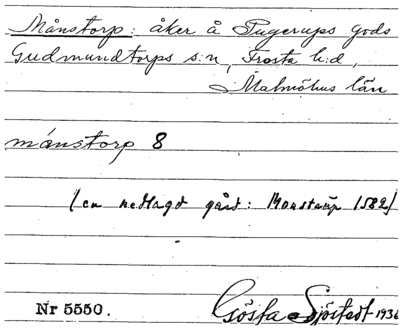 Månstorp: åker å Pugerups gods
Gudmundtorps s:n, Frosta h:d,
Malmöhus län
månstorp 8
(en nedlagd gård: Monstrup 1582)
Nr 5550.
Gösta Sjöstedt 1936